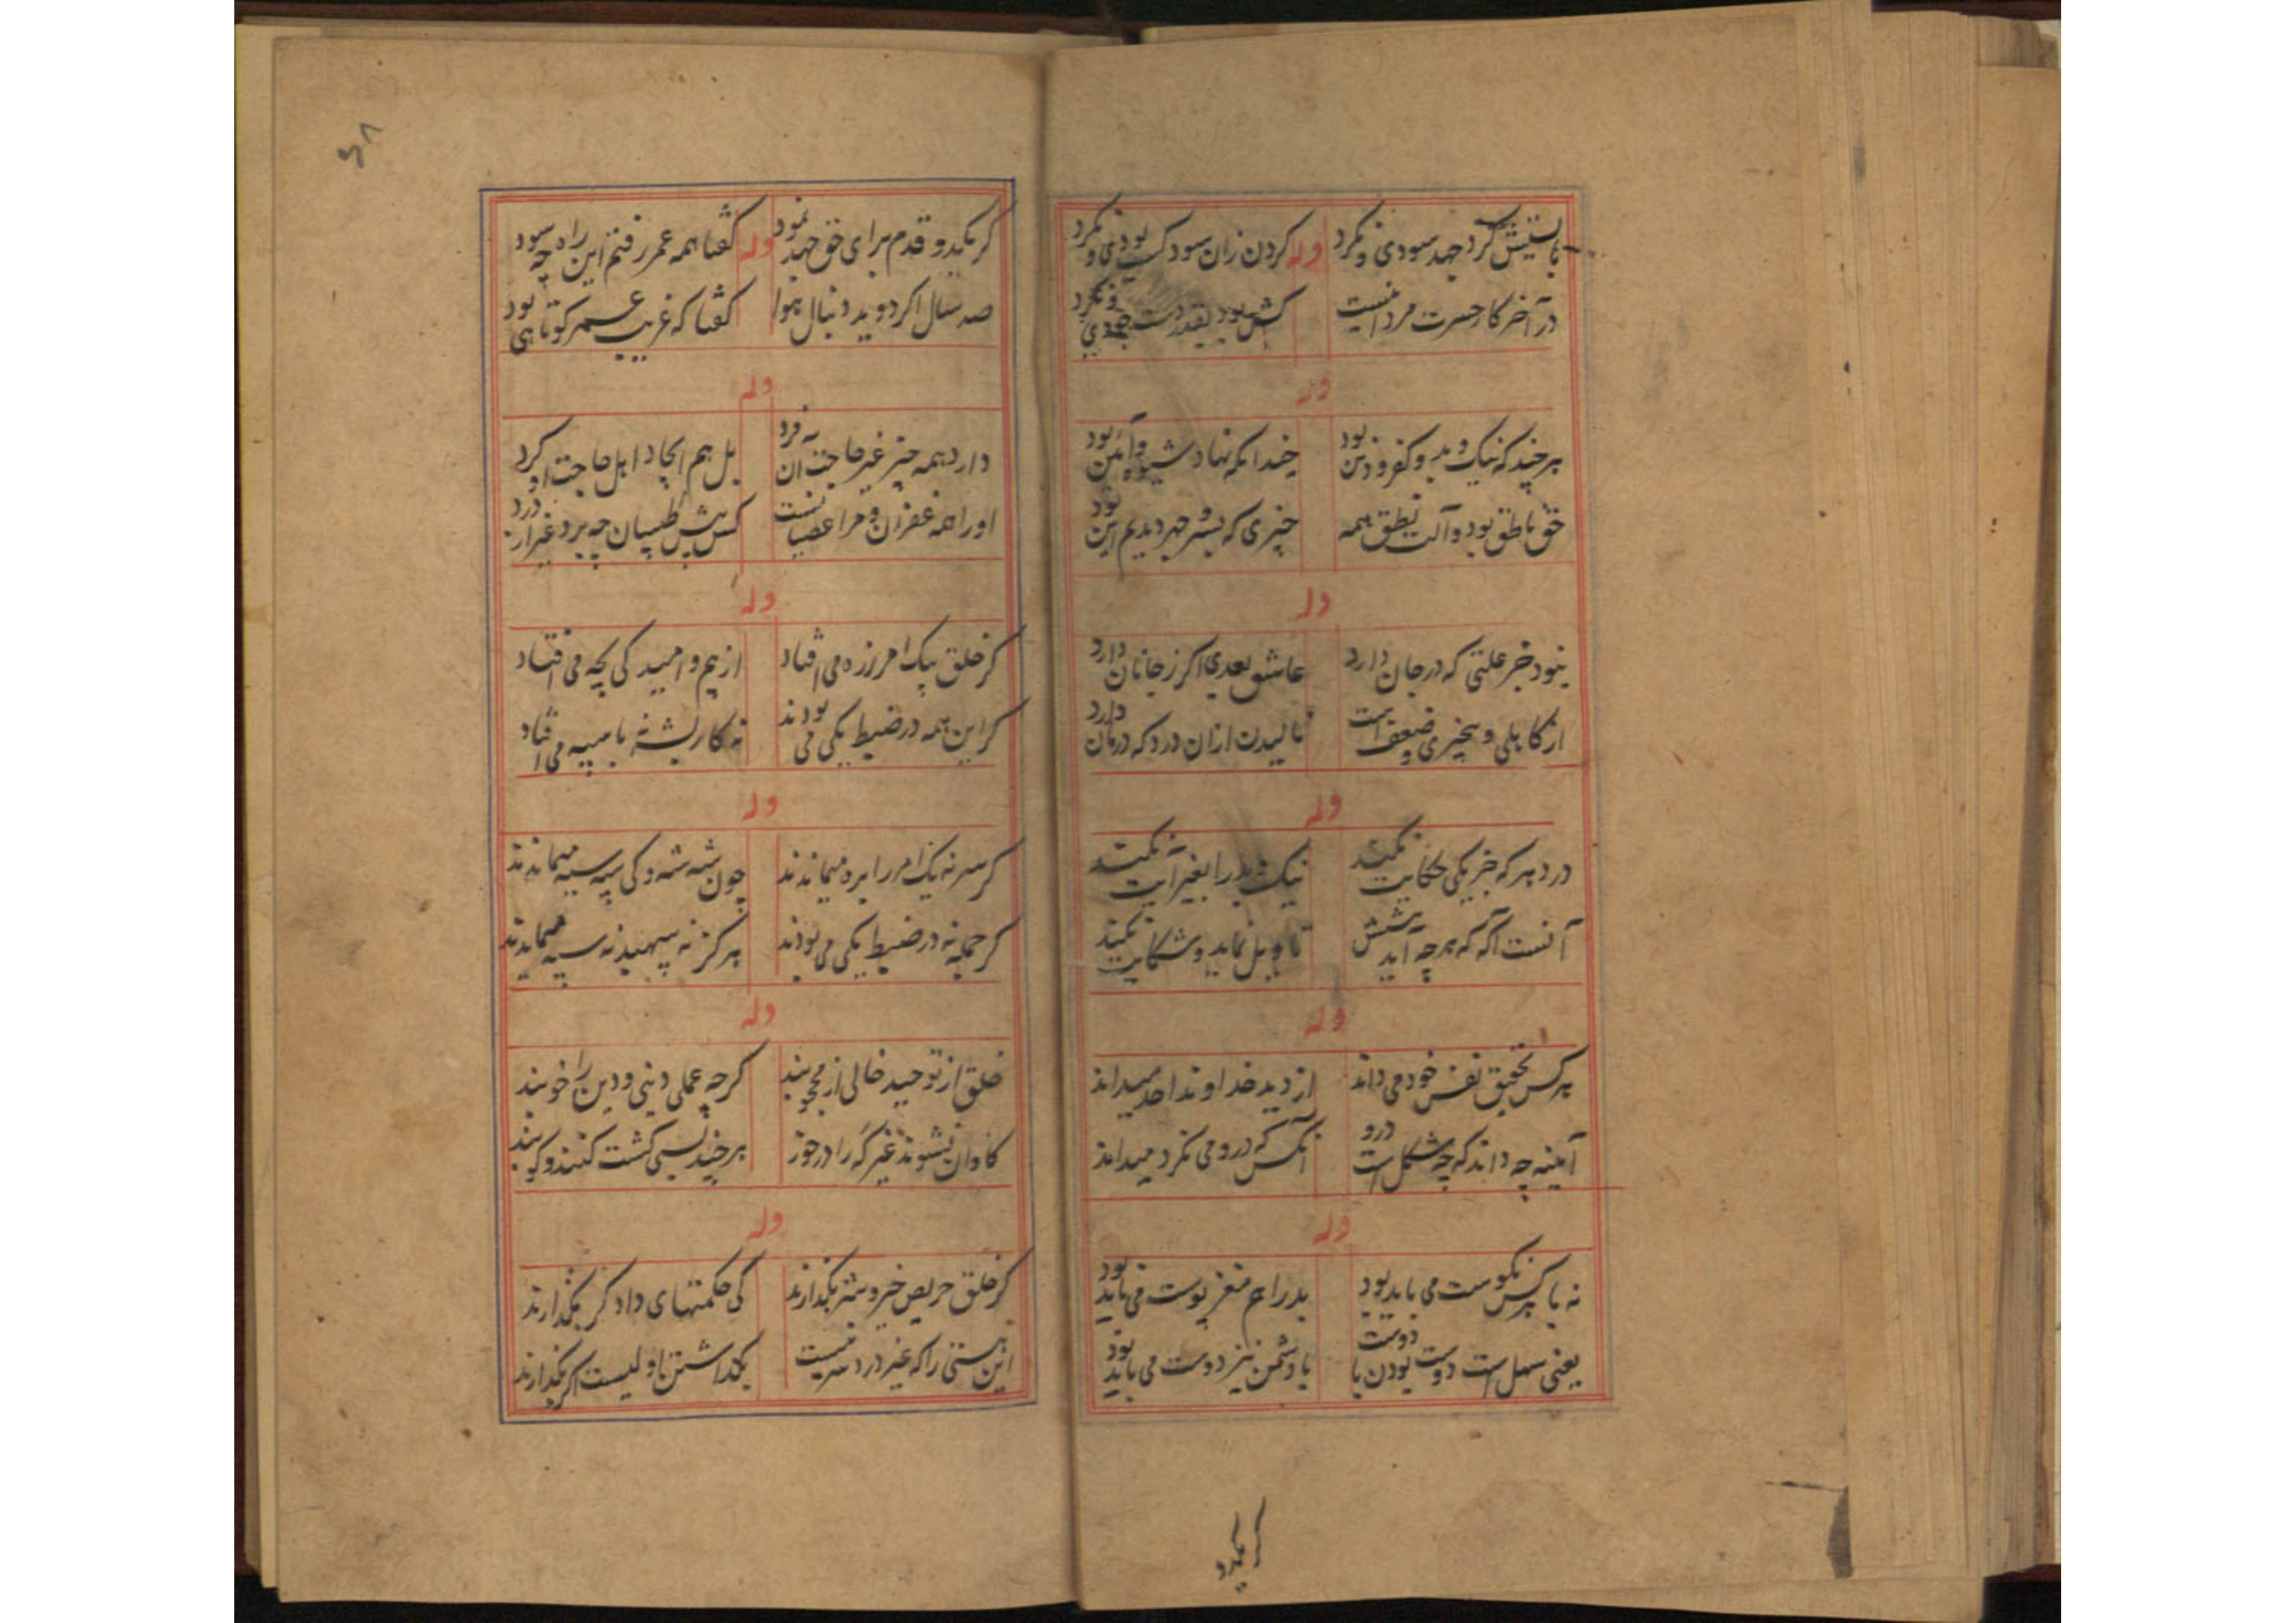 بایستیش کرد جهد سودی و نکرد
وله
کردن زان سود کسب بودی و نکرد
در آخر کار حسرت مرد اینست
کش بود بقدر دست جودی و نکرد
وله
هر چند که نیک و بد و کفر و دین بود
خندانکه نهاد شیوه و آئین بود
حق ناطق بود و آلت نطق همه
چیزی که بسر و جهر دیدیم این بود
وله
نبود جز علتی که در جان دارد
عاشق بعدی اگر ز جانان دارد
از کاهلی و بیخبری و ضعف است
نالیدن ازان درد که درمان دارد
وله
در دهر که جز یکی حکایت نکند
نیک و بد را بغیر آیت نکند
آنست آگه که هر چه آید پیشش
تاویل نماید و شکایت نکند
وله
هر کس تحقیق نفس خود می داند
از دید خداوند احد میداند
آیینه چه داند که چه شکل است درو
آنکس که درو می نکرد میداند
وله
نه با هر کس نکوست می باید بود
بد را هم مغز پوست می باید بود
یعنی سهل است دوست بودن با دوست
با دشمن نیز دوست می باید بود
کر یکدو
۶۸
کر یکدو قدم برای حق جهد نمود
وله
کفتا همه عمر رفتم این راه چه سود
صد سال اکر دوید دنبال هوا
کفتا که غریب عمر کوتاهی بود
وله
دارد همه چیز غیر حاجت آن فرد
بل هم ایجاد اهل حاجت او کرد
او را همه غفران و مرا عصیانست
کس پیش طبیبان چه برد غیر از درد
وله
کر خلق بیک امر زره می افتاد
از بیم و امید کی بچه می افتاد
کر این همه در ضبط یکی می بودند
نه کار بشه نه با سپه می افتاد
وله
کر سر نه یک امر را بره میماندند
چون شه شه و کی سپه سپه میماندند
کر جمله نه در ضبط یکی می بودند
هر کز نه سپهبد نه سپه میماندند
وله
خلق از توحید خالی از محجوبند
کرچه عملی دینی و دین را خوبند
کاوان نشوند غیر که را در خور
هر چند بسی کشت کنند و کوبند
وله
کر خلق حریص خیر و شر بکذارند
کی حکمتهای دادکر بکذارند
این هستی را که غیر درد سر نیست
بکذاشتن اولیست اکر بکذارند